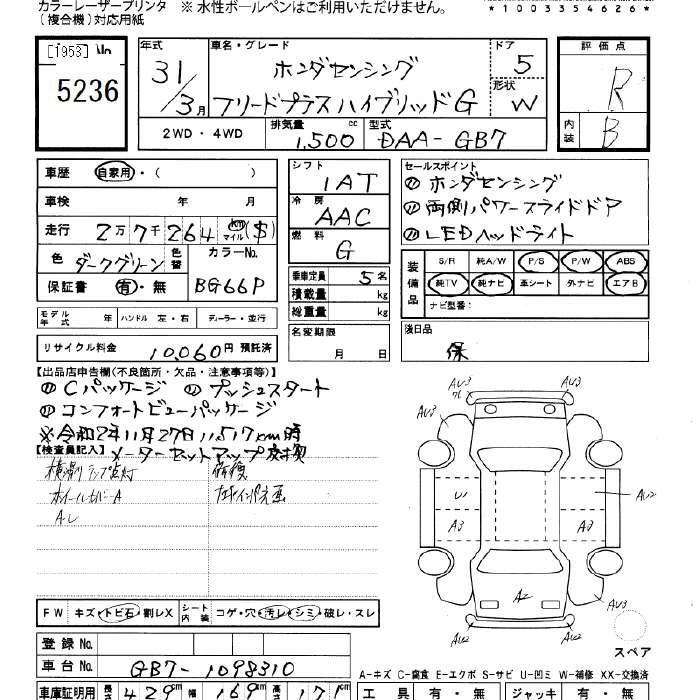 カラーレーザープリンタ ※ 水性ボールペンはご利用いただけません。
(複合機)対応用紙
*1003354626*
[1953] No
5236
年式 車名・グレード ドア
31/3月 ホンダセンシング 5
フリードプラスハイブリッドG 形状 W
2WD・4WD 排気量 1,500 cc 型式 DAA-GB7
評価点 R
内装 B
車歴 自家用・( )
車検 年 月
走行 2万7千264 km マイル ($)
色 ダークグリーン 色替 カラーNo.
保証書 有・無 BG66P
モデル年式 年 ハンドル 左・右 ディーラー・並行
リサイクル料金 10,060円 預託済
シフト 1AT
冷房 AAC
燃料 G
乗車定員 5名
積載量 kg
総重量 kg
名変期限
月 日
セールスポイント
① ホンダセンシング
② 両側パワースライドドア
③ LEDヘッドライト
装備品
S/R 純A/W P/S P/W ABS
純TV 純ナビ 革シート 外ナビ エアB
ナビ型番:
後日品
保
【出品店申告欄(不良箇所・欠品・注意事項等)】
Cパッケージ プッシュスタート
コンフォートビューパッケージ
※令和2年11月27日 11,517km時
メーターセットアップ交換
【検査員記入】
横滑りランプ点灯
ホイールカバーA
FW キズ・トビ石・割レX シート内装 コゲ・穴・汚レ・シミ・破レ・スレ
登録No.
車台No. GB7-1098310
車庫証明用 長さ 429cm 幅 169cm 高さ 171cm
AU3
AU3
AU3
U1
AU2
A3
A3
A2
AU3
AU2
AU2
スペア
A-キズ C-腐食 E-エクボ S-サビ U-凹ミ W-補修 XX-交換済
工具 有・無 ジャッキ 有・無